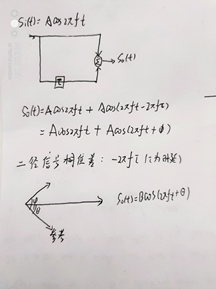 Si(t)=Acos2πft
Σ
So(t)
τ
So(t)=Acos2πft + Acos(2πft-2πfτ)
=Acos2πft + Acos(2πft+φ)
二径信号相位差: -2πfτ (τ为时延)
φ
θ
So(t)=Bcos(2πft+θ)
参考